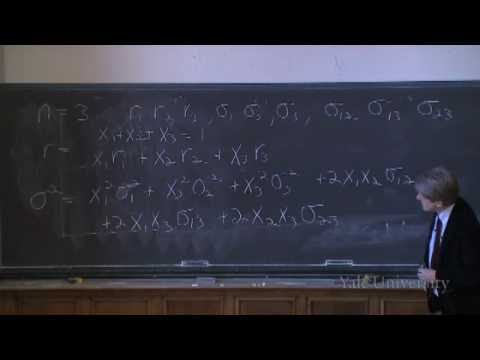 n = 3 r₁ r₂ r₃, σ₁ σ₃, σ₃, σ₁₂ σ₁₃ σ₂₃
x₁ + x₂ + x₃ = 1
r = x₁r₁ + x₂r₂ + x₃r₃
σ² = x₁²σ₁² + x₃²σ₂² + x₃²σ₃² + 2x₁x₂σ₁₂
+2x₁x₃σ₁₃ + 2x₂x₃σ₂₃
Yale University